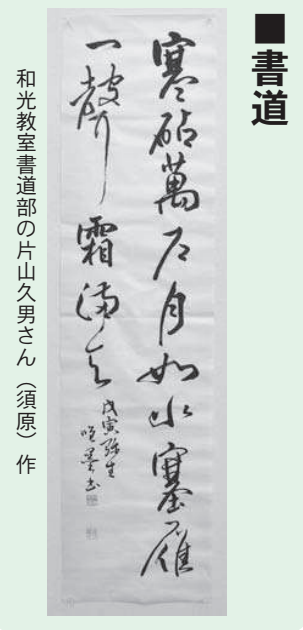 ■書道
寒砧萬戸月如水塞雁
一聲霜満天
戊寅弥生
和光教室書道部の片山久男さん（須原）作